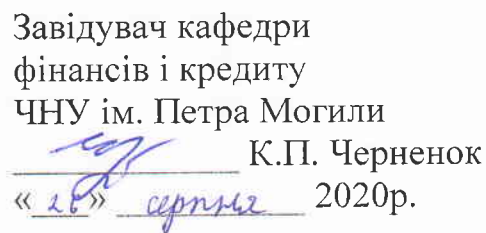 Завідувач кафедри
фінансів і кредиту
ЧНУ ім. Петра Могили
К.П. Черненок
«26» серпня 2020р.